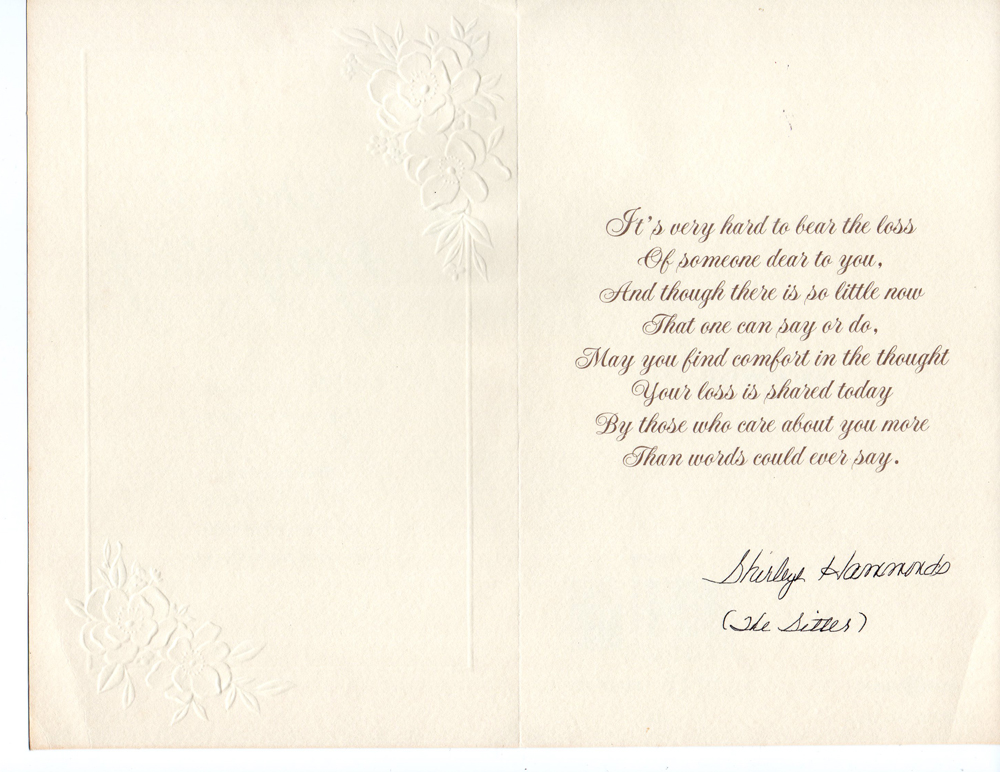 It's very hard to bear the loss
Of someone dear to you,
And though there is so little now
That one can say or do,
May you find comfort in the thought
Your loss is shared today
By those who care about you more
Than words could ever say.
Shirleye Hammonds
(The Sitter)